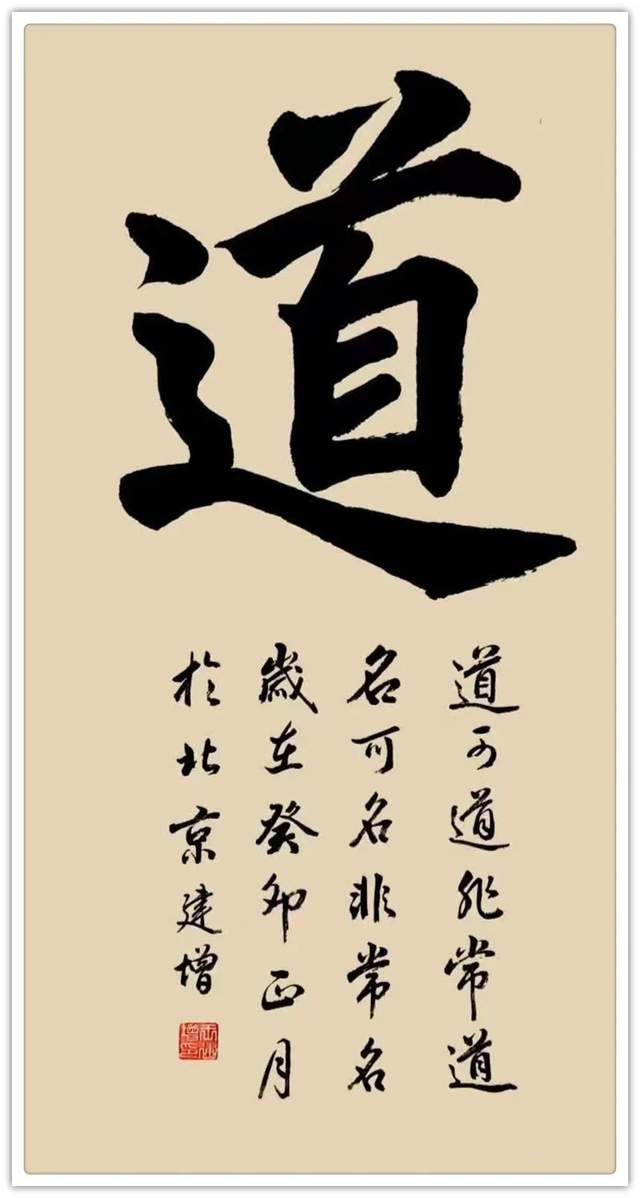 道
道可道非常道
名可名非常名
歲在癸卯正月
於北京建增